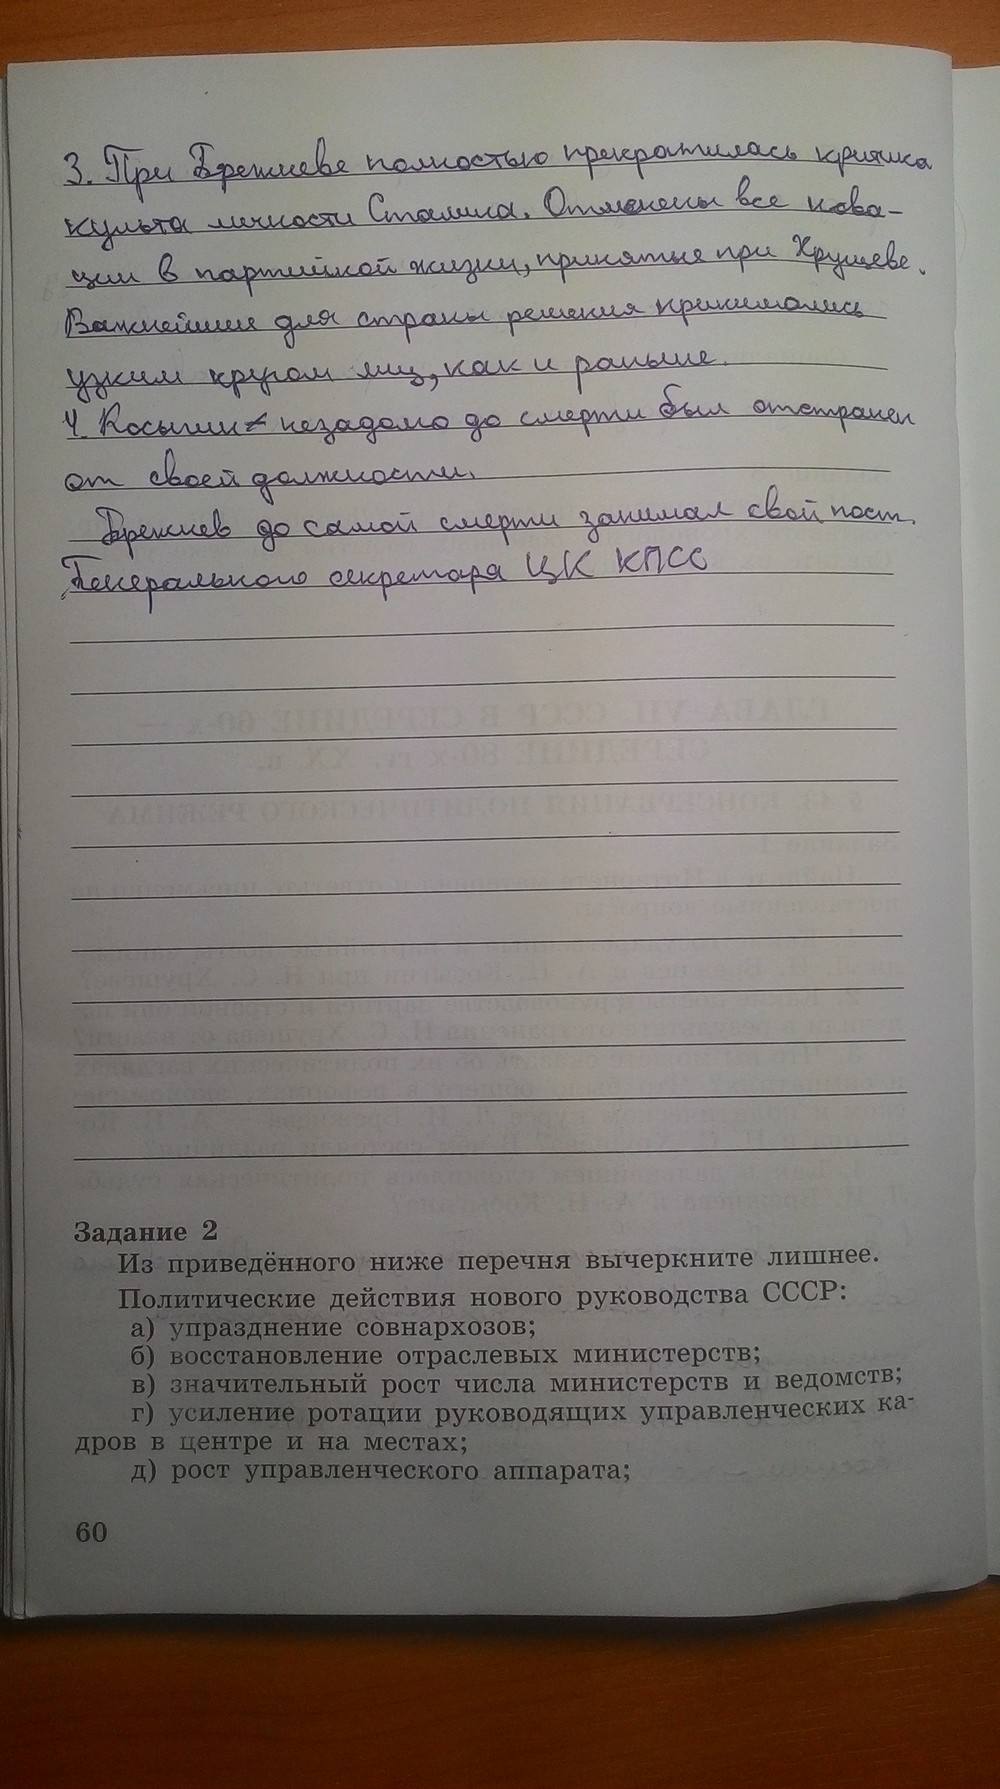 3. При Брежневе полностью прекратилась критика
культа личности Сталина. Отменены все нова-
ции в партийной жизни, принятые при Хрущеве.
Важнейшие для страны решения принимались
узким кругом лиц, как и раньше.
4. Косыгин незадолго до смерти был отстранен
от своей должности.
Брежнев до самой смерти занимал свой пост.
Генерального секретаря ЦК КПСС
Задание 2
Из приведённого ниже перечня вычеркните лишнее.
Политические действия нового руководства СССР:
а) упразднение совнархозов;
б) восстановление отраслевых министерств;
в) значительный рост числа министерств и ведомств;
г) усиление ротации руководящих управленческих ка-
дров в центре и на местах;
д) рост управленческого аппарата;
60